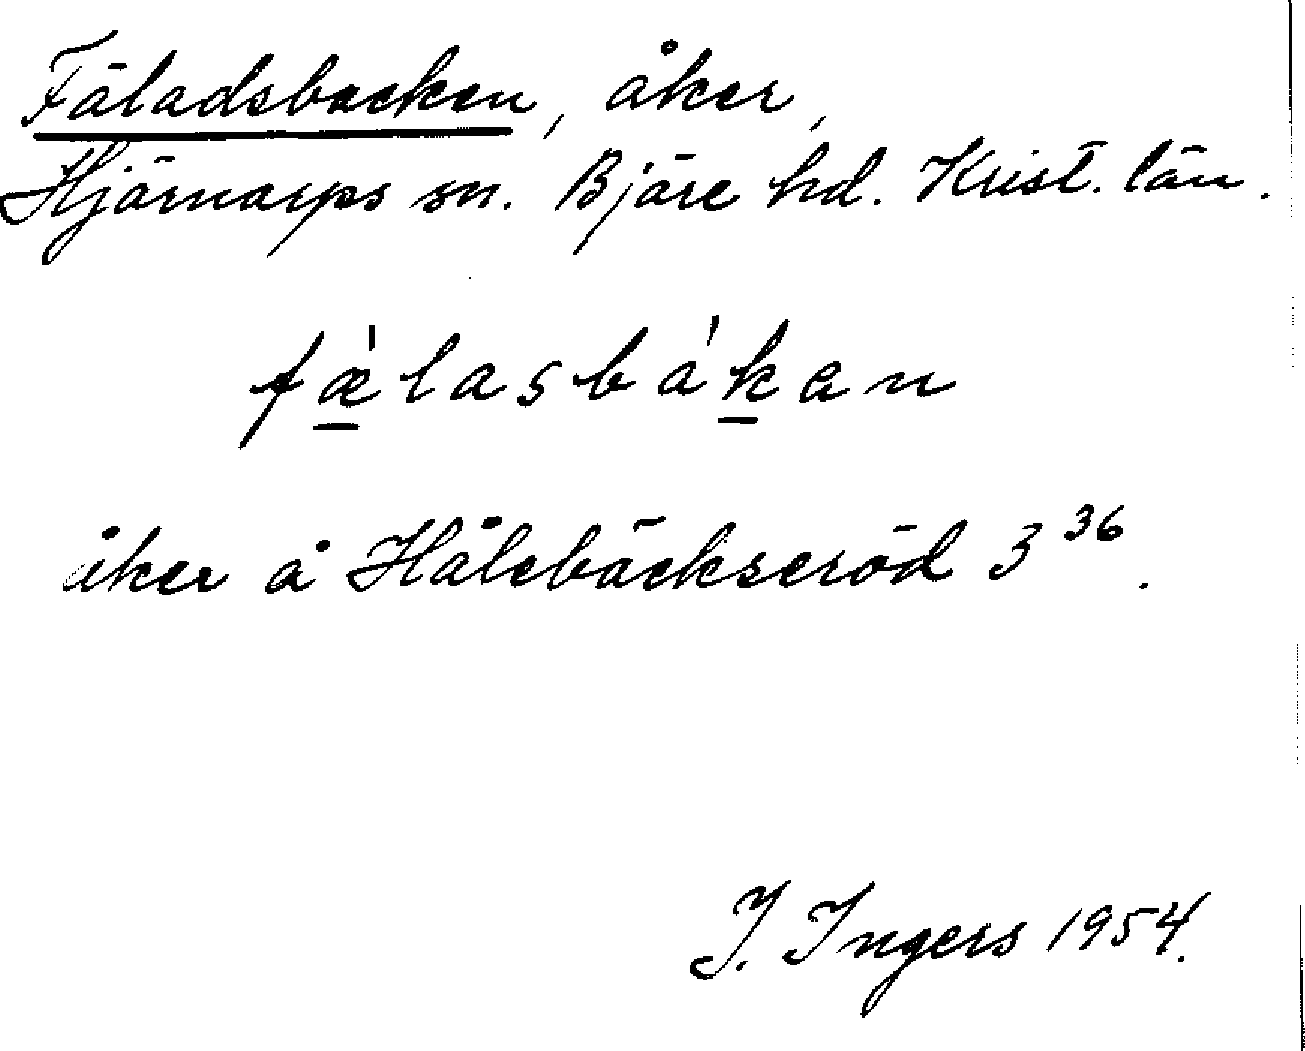 Fäladsbacken, åker,
Hjärnarps sn. Bjäre hd. Krist. län.
fæ̠̀lasbák̠an
åker å Hålebäckseröd 3³⁶.
I. Ingers 1954.